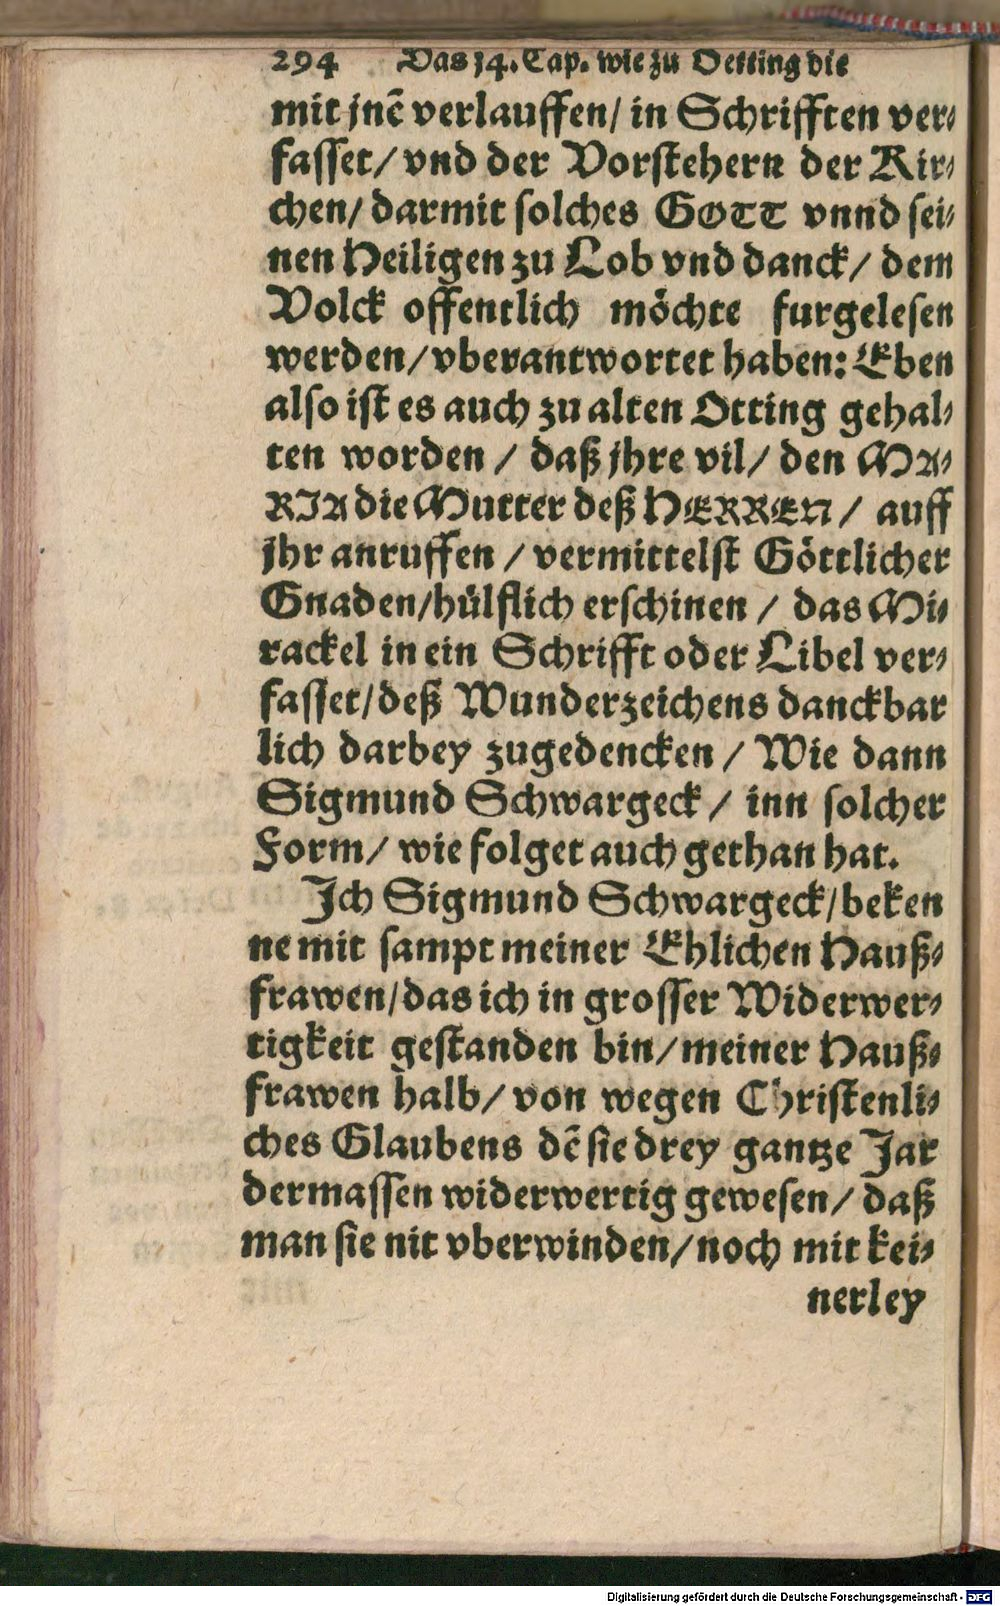 294 Das 14. Cap. wie zu Oetting die
mit jnẽ verlauffen/ in Schrifften ver-
fasset/ vnd der Vorstehern der Kir-
chen/ darmit solches GOTT vnnd sei-
nen Heiligen zu Lob vnd danck/ dem
Volck offentlich möchte furgelesen
werden/ vberantwortet haben: Eben
also ist es auch zu alten Otting gehal-
ten worden / daß jhre vil/ den MA-
RIA die Mutter deß HERREN / auff
jhr anruffen / vermittelst Göttlicher
Gnaden/hülflich erschinen / das Mi-
rackel in ein Schrifft oder Libel ver-
fasset/deß Wunderzeichens danckbar
lich darbey zugedencken / Wie dann
Sigmund Schwargeck / inn solcher
Form/ wie folget auch gethan hat.
Ich Sigmund Schwargeck/beken
ne mit sampt meiner Ehlichen Hauß-
frawen/das ich in grosser Widerwer-
tigkeit gestanden bin/meiner Hauß-
frawen halb/ von wegen Christenli-
ches Glaubens dẽ sie drey gantze Jar
dermassen widerwertig gewesen/ daß
man sie nit vberwinden/noch mit kei-
nerley
Digitalisierung gefördert durch die Deutsche Forschungsgemeinschaft - DFG